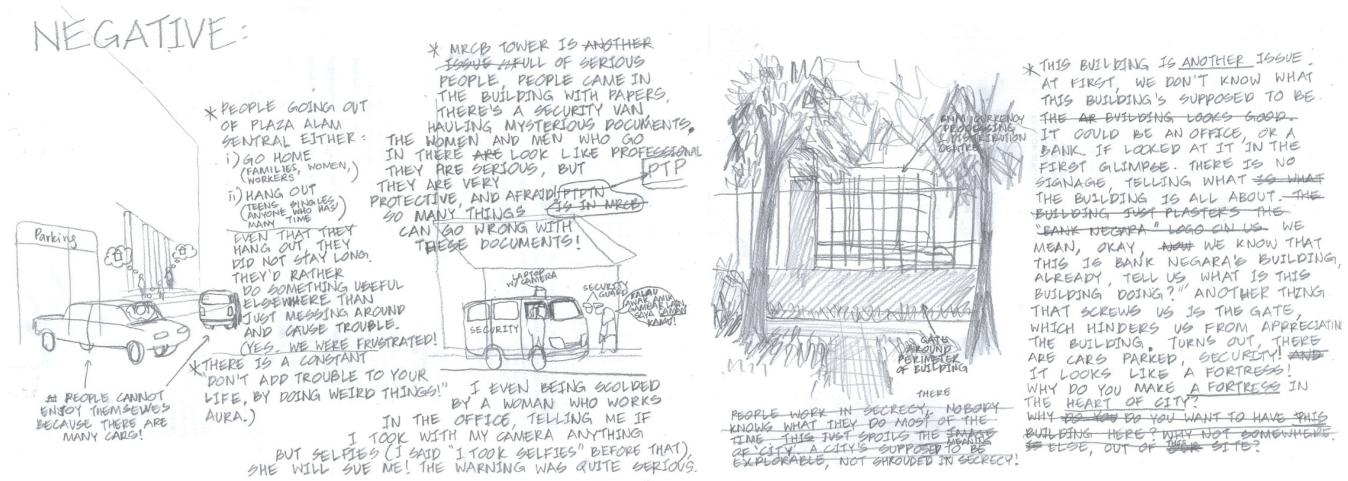 NEGATIVE:
* PEOPLE GOING OUT
OF PLAZA ALAM
SENTRAL EITHER:
i) GO HOME
(FAMILIES, WOMEN,
WORKERS)
ii) HANG OUT
(TEENS, SINGLES,
ANYONE WHO HAS
MANY TIME)
EVEN THAT THEY
HANG OUT, THEY
DID NOT STAY LONG.
THEY'D RATHER
DO SOMETHING USEFUL
ELSEWHERE THAN
JUST MESSING AROUND
AND CAUSE TROUBLE.
(YES, WE WERE FRUSTRATED!
* THERE IS A CONSTANT
"DON'T ADD TROUBLE TO YOUR
LIFE, BY DOING WEIRD THINGS!"
AURA.)
Parking
PEOPLE CANNOT
ENJOY THEMSELVES
BECAUSE THERE ARE
MANY CARS!
* MRCB TOWER IS ANOTHER
ISSUE. FULL OF SERIOUS
PEOPLE. PEOPLE CAME IN
THE BUILDING WITH PAPERS,
THERE'S A SECURITY VAN
HAULING MYSTERIOUS DOCUMENTS.
THE WOMEN AND MEN WHO GO
IN THERE ARE LOOK LIKE PROFESSIONAL
THEY ARE SERIOUS, BUT
THEY ARE VERY
PROTECTIVE, AND AFRAID!
SO MANY THINGS
CAN GO WRONG WITH
THESE DOCUMENTS!
PTPTN
IS IN MRCB
PTP
LAPTOP
W/ CAMERA
SECURITY
GUARD
SECURITY
KALAU
AWAK AMIK
GAMBAR LAIN,
SAYA SAMAN
KAMU!
I EVEN BEING SCOLDED
BY A WOMAN WHO WORKS
IN THE OFFICE, TELLING ME IF
I TOOK WITH MY CAMERA ANYTHING
BUT SELFIES (I SAID "I TOOK SELFIES" BEFORE THAT),
SHE WILL SUE ME! THE WARNING WAS QUITE SERIOUS.
CURRENCY
PROCESSING
& DISTRIBUTION
CENTRE
GATE
AROUND
PERIMETER
OF BUILDING
THERE
PEOPLE WORK IN SECRECY, NOBODY
KNOWS WHAT THEY DO MOST OF THE
TIME. THIS JUST SPOILS THE IMAGE
MEANING
OF 'CITY'. A CITY'S SUPPOSED TO BE
EXPLORABLE, NOT SHROUDED IN SECRECY!
* THIS BUILDING IS ANOTHER ISSUE.
AT FIRST, WE DON'T KNOW WHAT
THIS BUILDING'S SUPPOSED TO BE.
THE BUILDING LOOKS GOOD.
IT COULD BE AN OFFICE, OR A
BANK. IF LOOKED AT IT IN THE
FIRST GLIMPSE. THERE IS NO
SIGNAGE, TELLING WHAT IS WHAT
THE BUILDING IS ALL ABOUT. THE
BUILDING JUST PLASTERS THE
"BANK NEGARA" LOGO ON US. WE
MEAN, OKAY, NOW WE KNOW THAT
THIS IS BANK NEGARA'S BUILDING,
ALREADY, TELL US, WHAT IS THIS
BUILDING DOING?" ANOTHER THING
THAT SCREWS US IS THE GATE,
WHICH HINDERS US FROM APPRECIATIN
THE BUILDING. TURNS OUT, THERE
ARE CARS PARKED, SECURITY! AND
IT LOOKS LIKE A FORTRESS!
WHY DO YOU MAKE A FORTRESS IN
THE HEART OF CITY?
WHY DO YOU DO YOU WANT TO HAVE THIS
BUILDING HERE? WHY NOT SOMEWHERE
ELSE, OUT OF THIS SITE?